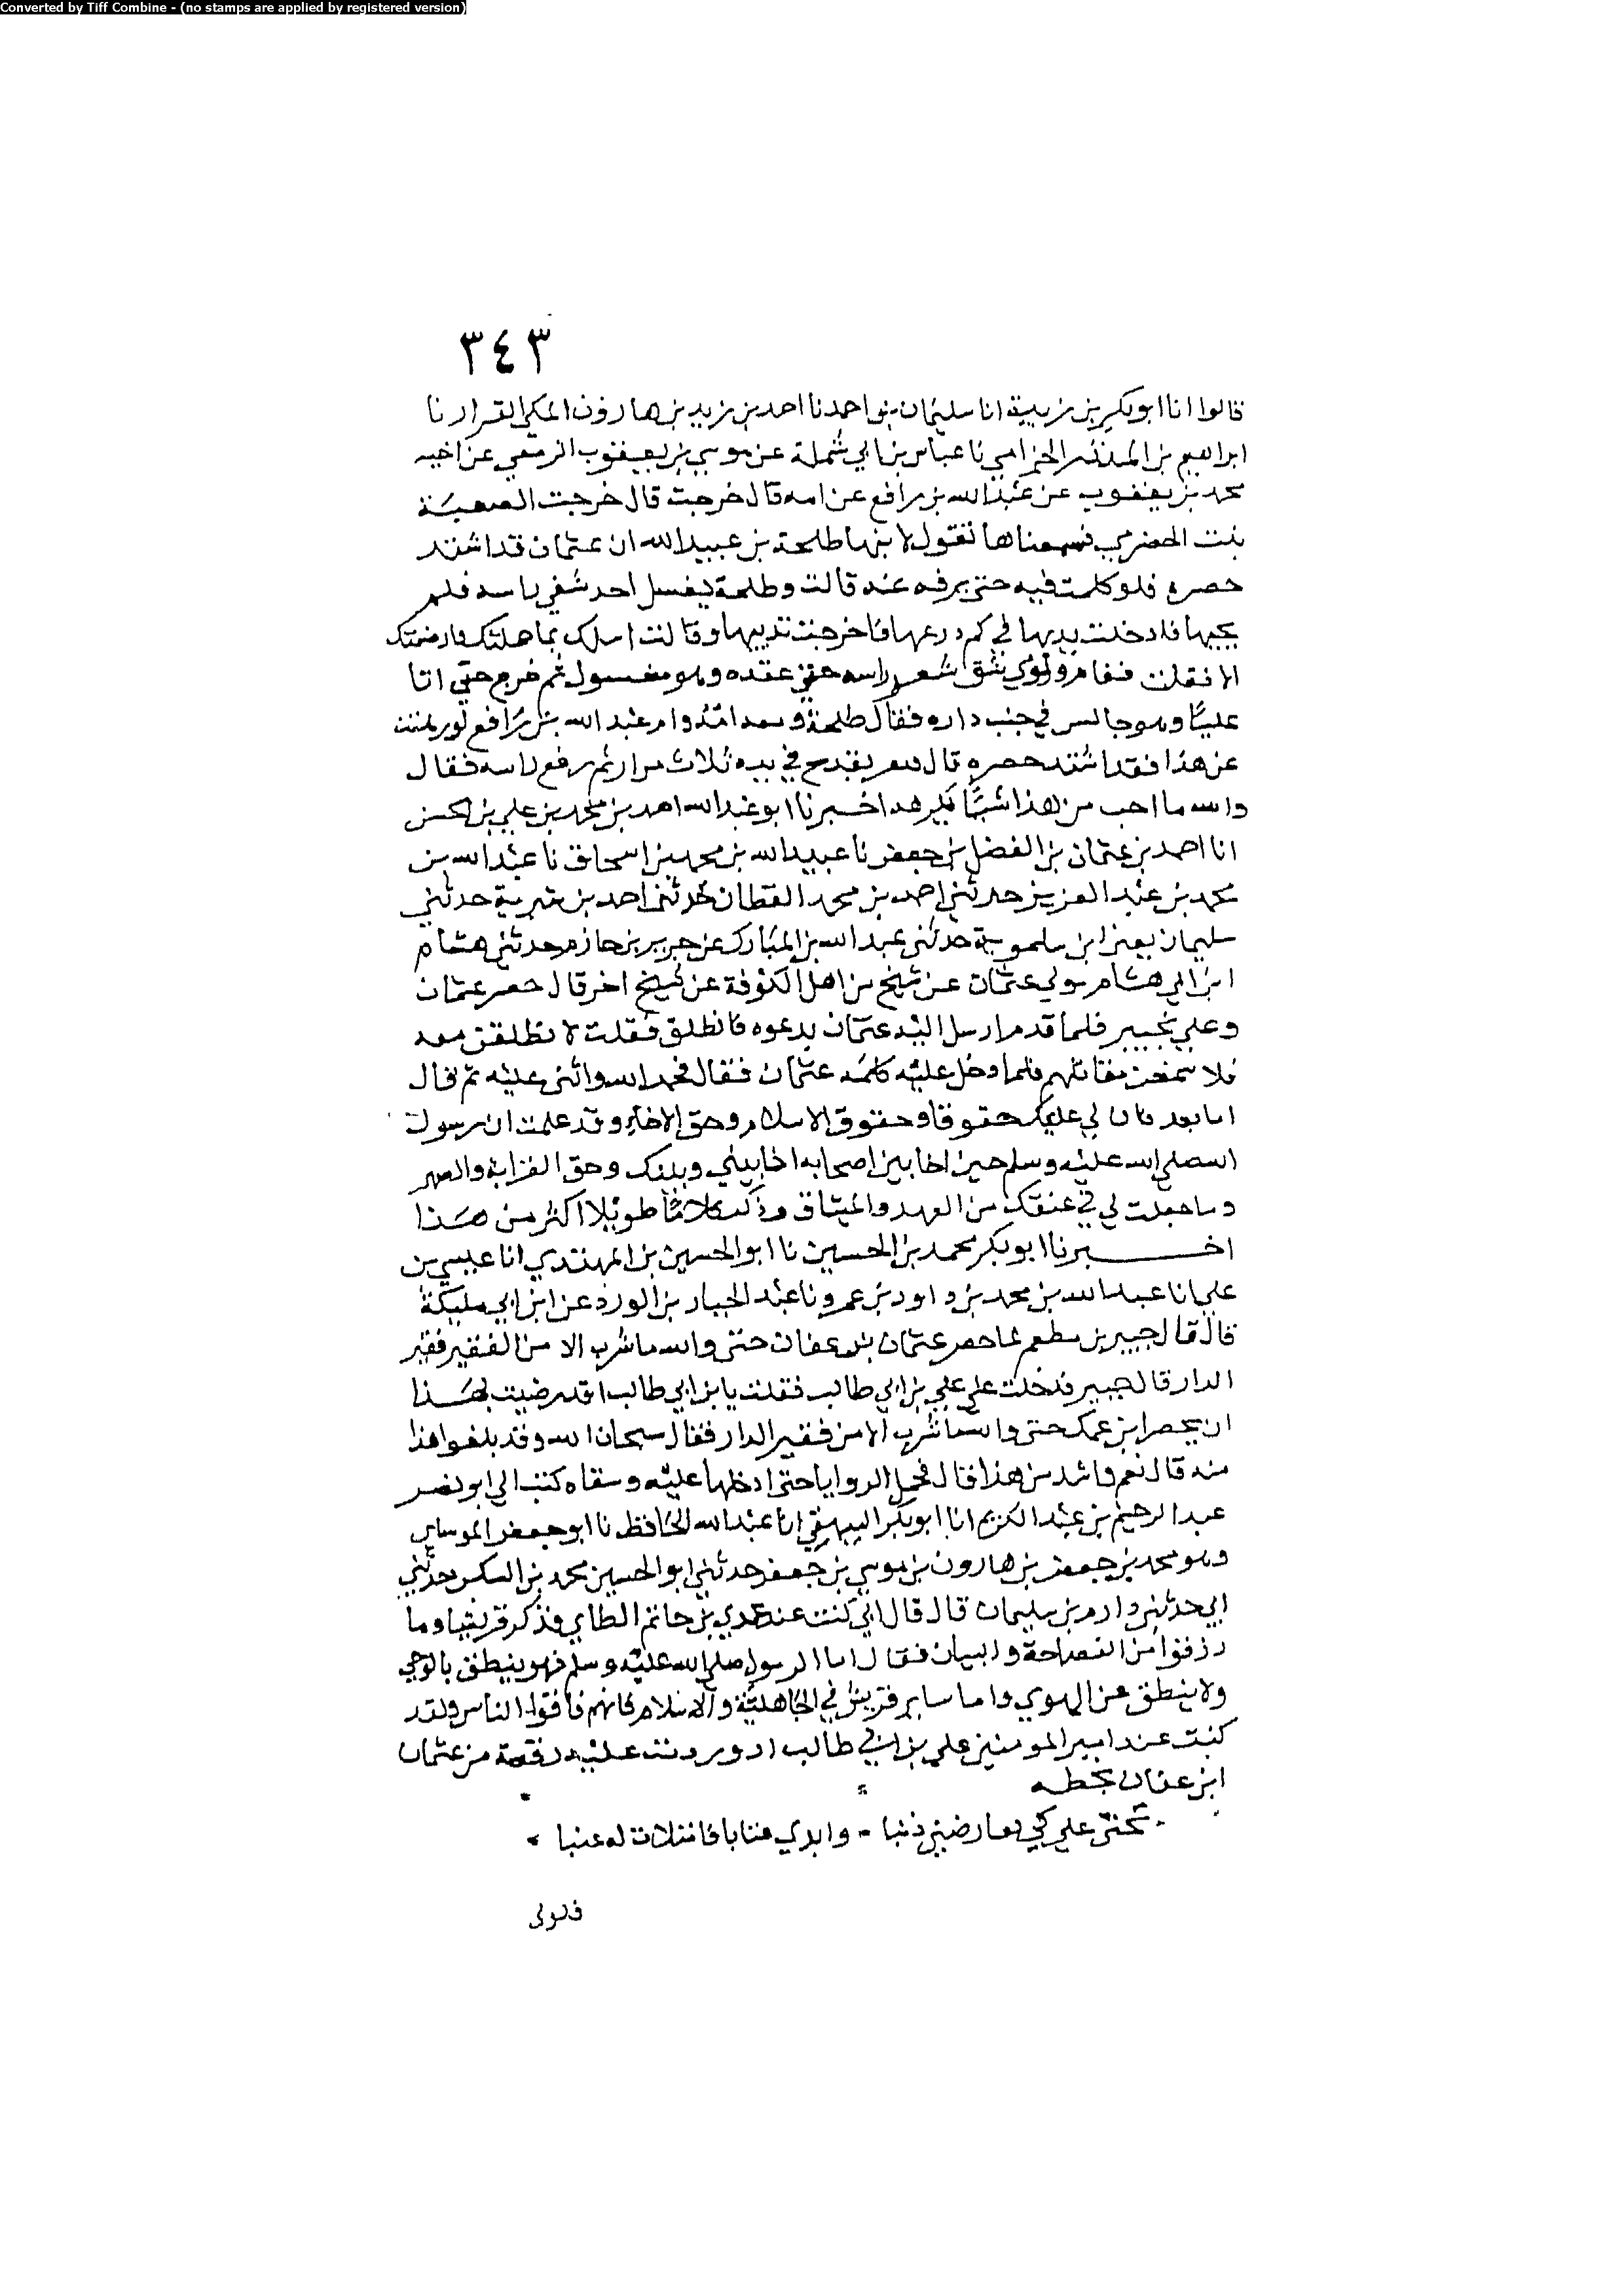 Converted by Tiff Combine - (no stamps are applied by registered version)
٣٤٣
قالوا انا ابو بكر بن ريذة انا سليمان بن احمد نا احمد بن زيد بن هارون المكي القزاز نا
ابراهيم بن المنذر الحزامي نا عباس بن ابي شملة عن موسي بن يعقوب الزمعي عن اخيه
محمد بن يعقوب عن عبد الله بن رافع عن امه قال خرجت قال خرجت الصعبة
بنت الحضرمي فسمعناها تقول لابنها طلحة بن عبيد الله ان عثمان قد اشتد
حصره فلو كلمت فيه حتي يرفه عنه قالت وطلحة يغسل احد شقي راسه فلم
يجبها فادخلت يديها في كم درعها فاخرجت ثدييها وقالت اسلك بما حملتك وارضعتك
الا فعلت فقام ولوي شق شعر راسه حتي عقده وهو مغسول ثم خرج حتي اتا
عليًا وهو جالس في جنب داره فقال طلحة ومعه امه وام عبد الله بن رافع لو
عن هذا فقد اشتد حصره قال يقدح في يده ثلاث مرار ثم رفع راسه فقال
والله ما احب من هذا شيًا يكرهه اخبرنا ابو عبد الله احمد بن محمد بن علي بن الحسن
انا احمد بن عثمان بن الفضل بن جعفر نا عبيد الله بن محمد بن اسحاق نا عبد الله بن
محمد بن عبد العزيز حدثني احمد بن محمد القطان حدثنا احمد بن شبوية حدثني
سليمان يعني ابن سلموية حدثني عبد الله بن المبارك عن جرير بن حازم حدثني هشام
ابن ابي هشام مولي عثمان عن شيخ من اهل الكوفة عن شيخ اخر قال حصر عثمان
وعلي بخيبر فلما قدم ارسل اليه عثمان يدعوه فانطلق فقلت لانطلقن معه
فلاسمعن مقالتهم فلما دخل عليه كلمه عثمان فقال فحمد الله واثني عليه ثم قال
اما بعد فان لي عليك حقوقا وحقوق الاسلام وحق الاخاء وقد علمت ان رسول
الله صلي الله عليه وسلم حين اخا بين اصحابه اخا بيني وبينك وحق القرابة والصهر
وما جعلت لي في عنقك من العهد والميثاق وذكر كلامًا طويلا اكثر من هذا
اخبرنا ابو بكر محمد بن الحسين نا ابو الحسين بن المهتدي انا عيسي بن
علي انا عبد الله بن محمد بن داود بن عمرو نا عبد الجبار بن الورد عن ابن ابي مليكة
قال قال جبير بن مطعم لما حصر عثمان بن عفان حتي والله ما شرب الا من الفقير فقير
الدار قال جبير فدخلت علي علي بن ابي طالب فقلت يا بن ابي طالب اقد رضيت بهذا
ان يحصر ابن عمك حتي والله ما شرب الا من فقير الدار فقال سبحان الله وقد بلغوا هذا
منه قال نعم واشد من هذا قال فحمل الروايا حتي ادخلها عليه وسقاه كتب الي ابو نصر
عبد الرحيم بن عبد الكريم انا ابو بكر البيهقي انا عبد الله الحافظ نا ابو جعفر الموساي
وهو محمد بن جعفر بن هارون بن موسي بن جعفر حدثني ابو الحسين محمد بن العسكر حدثني
ابي حدثني دارم بن سليمان قال قال ابي كنت عند عدي بن حاتم الطاي فذكر قريشا وما
رزقوا من الفصاحة والبيان فقال اما الرسول صلي الله عليه وسلم فهو ينطق بالوحي
ولا ينطق عن الهوي واما ساير قريش في الجاهلية والاسلام فانهم فاقوا الناس ولقد
كنت عند امير المومنين علي بن ابي طالب اذ وردت عليه رقعة من عثمان
ابن عفان بخطه
تجني علي كي يعارضني ذنبا - وابدي عتابا فامتلات له عتبا
فلولي